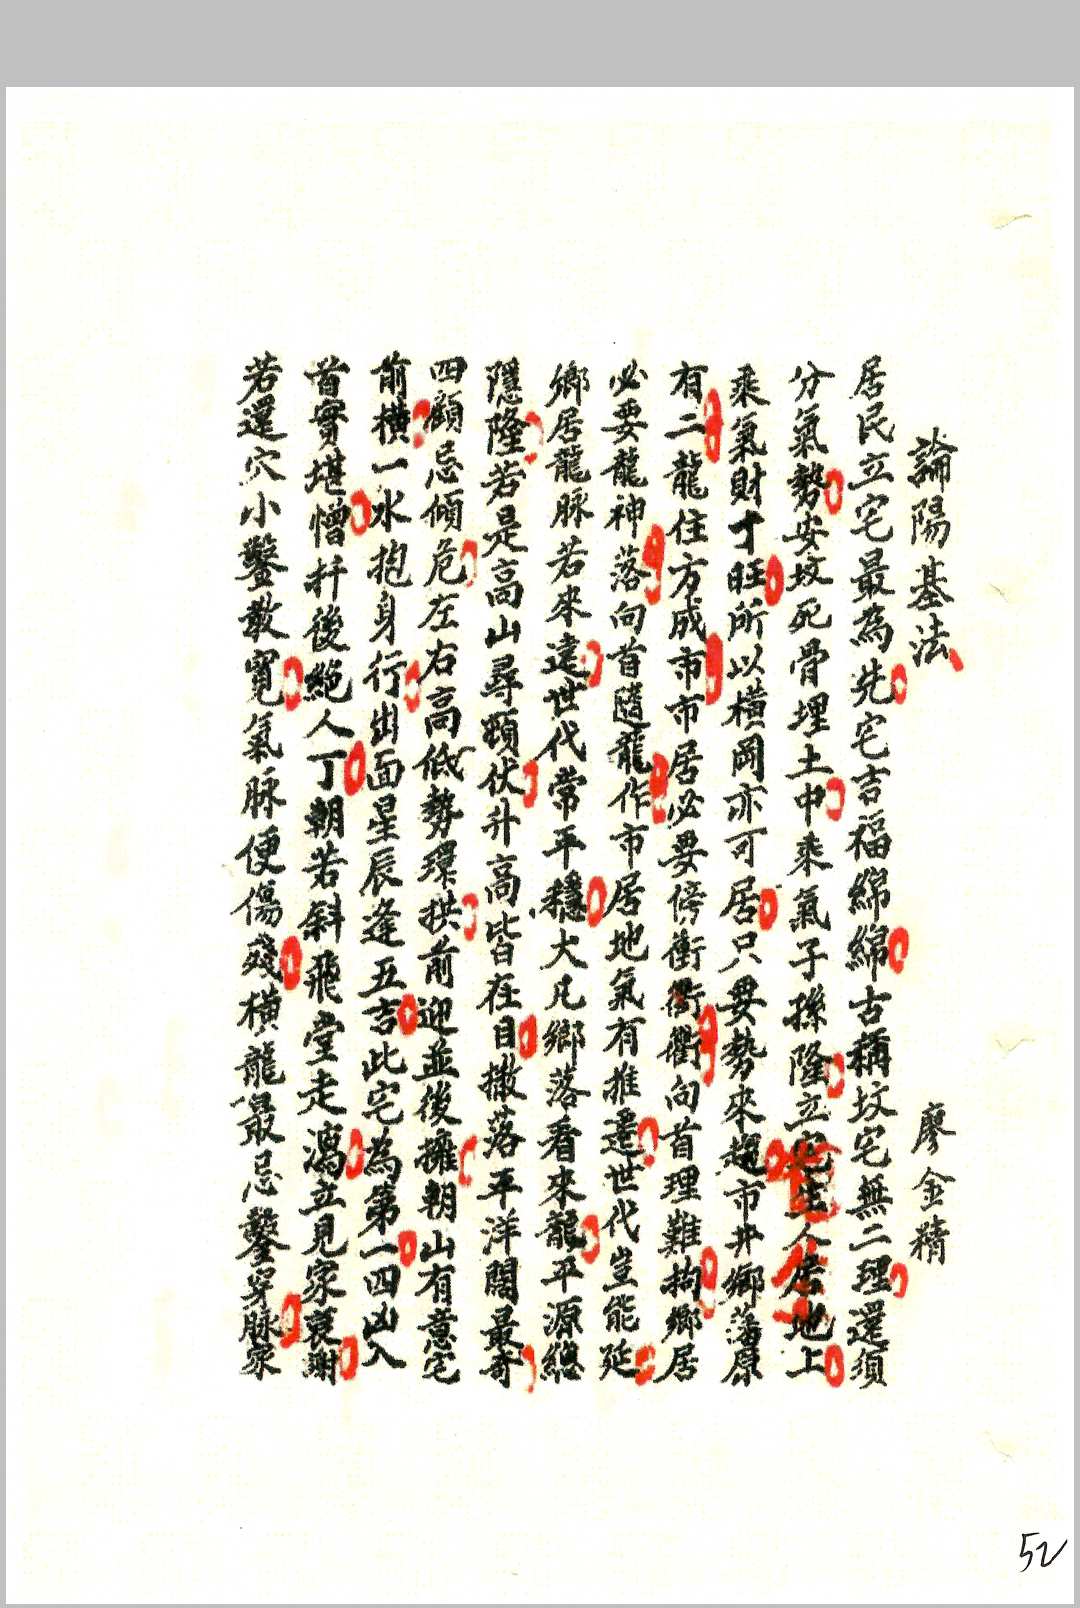 論陽基法 廖金精
居民立宅最為先宅吉福綿綿古稱坟宅無二理還須
分氣勢安坟死骨埋土中乘氣子孫隆立宅生人居地上
乘氣財丁旺所以橫岡亦可居只要勢來趨市井鄉落原
有二龍住方成市市居必要傍街衢衢向首理難拘鄉居
必要龍神落向首隨龍作市居地氣有推遷世代豈能延
鄉居龍脉若來遠世代常平穩大凡鄉落看來龍平源總
隱隆若是高山尋頓伏升高皆在目撒落平洋闊最奇
四顧忌傾危左右高低勢環拱前迎並後擁朝山有意宅
前橫一水抱身行出面星辰逢五吉此宅為第一四凶入
首實堪憎扦後絕人丁朝若斜飛堂走瀉立見家衰謝
若還穴小鑿教寬氣脉便傷殘橫龍最忌鑿穿脉家
52